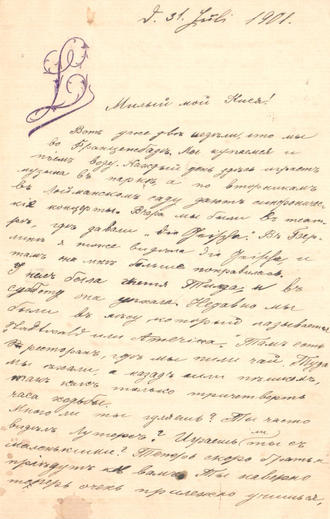 D. 31. Juli 1901.
L
Милый мой Кися!
Вотъ уже двѣ недѣли, что мы
во Франценсбадѣ. Мы купаемся и
пьемъ воду. Каждый день здѣсь играетъ
музыка въ паркѣ, а по вторникамъ
въ саду даютъ симфониче-
скіе концерты. Вчера мы были въ теат-
рѣ, гдѣ давали „Die
я тоже видѣла Die и
тамъ мнѣ больше понравилась.
У насъ была тетя и въ
субботу она уѣхала. Недавно мы
были въ лѣсу, который называется
или Америка. Тамъ есть
ресторанъ, гдѣ мы пили чай. Туда
мы ѣхали, а назадъ шли пѣшкомъ,
такъ какъ только три четверти
часа ходьбы.
Много ли ты гуляешь? Ты часто
видишь Играешь ли ты съ
маленькими? Теперь скоро
пріѣдутъ къ вамъ. Ты навѣрно
теперь очень прилежно учишься,